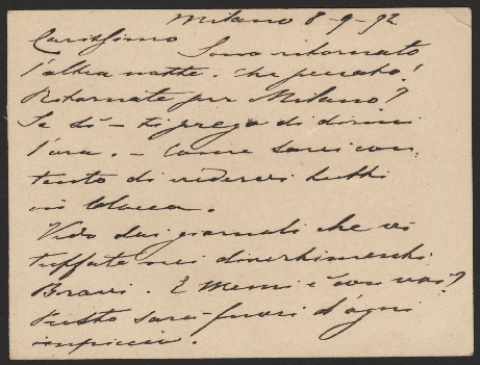 Milano 8-9-92
Carissimo Sono ritornato
l'altra notte. Che peccato!
Ritornate per Milano?
Se dì - ti prego di dirmi
l'ora. - Come sarei con
tento di vedervi tutti
in blocco.
Vedo dai giornali che vi
tuffate nei divertimenti.
Bravi. E Memi è con voi?
Presto sarà fuori d'ogni
impiccio.